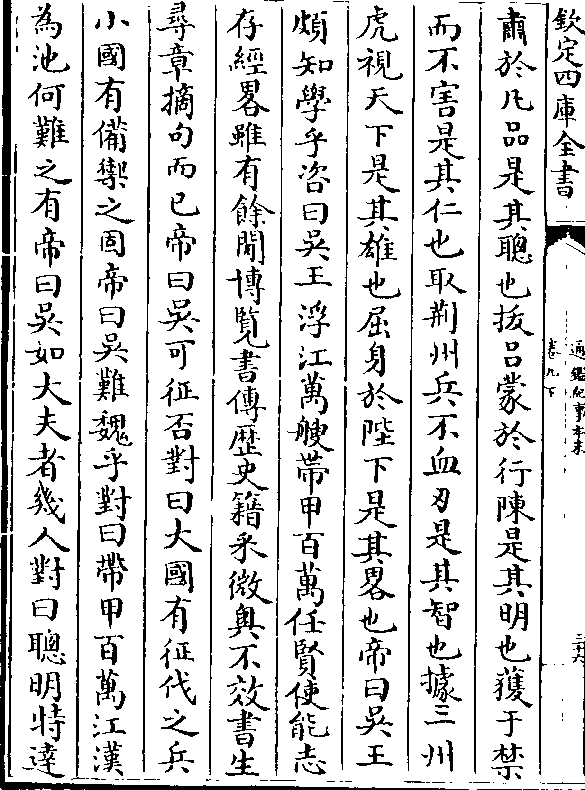 欽定四庫全書
通鑑紀事本末
卷九下
三十六
肅於凡品是其聰也拔吕蒙於行陳是其明也獲于禁
而不害是其仁也取荆州兵不血刃是其智也據三州
虎視天下是其雄也屈身於陛下是其畧也帝曰吳王
頗知學乎咨曰吳王浮江萬艘帶甲百萬任賢使能志
存經畧雖有餘閒博覽書傳歴史籍采微奥不效書生
尋章摘句而已帝曰吳可征否對曰大國有征伐之兵
小國有備禦之固帝曰吳難魏乎對曰帶甲百萬江漢
為池何難之有帝曰吳如大夫者幾人對曰聰明特達